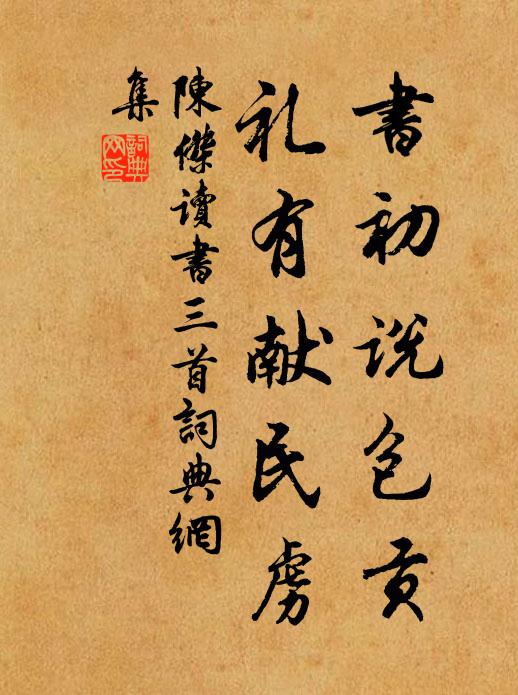 書初说包贡
礼有献民虏
陳傑讀書三首詞典網
集
詞典网印